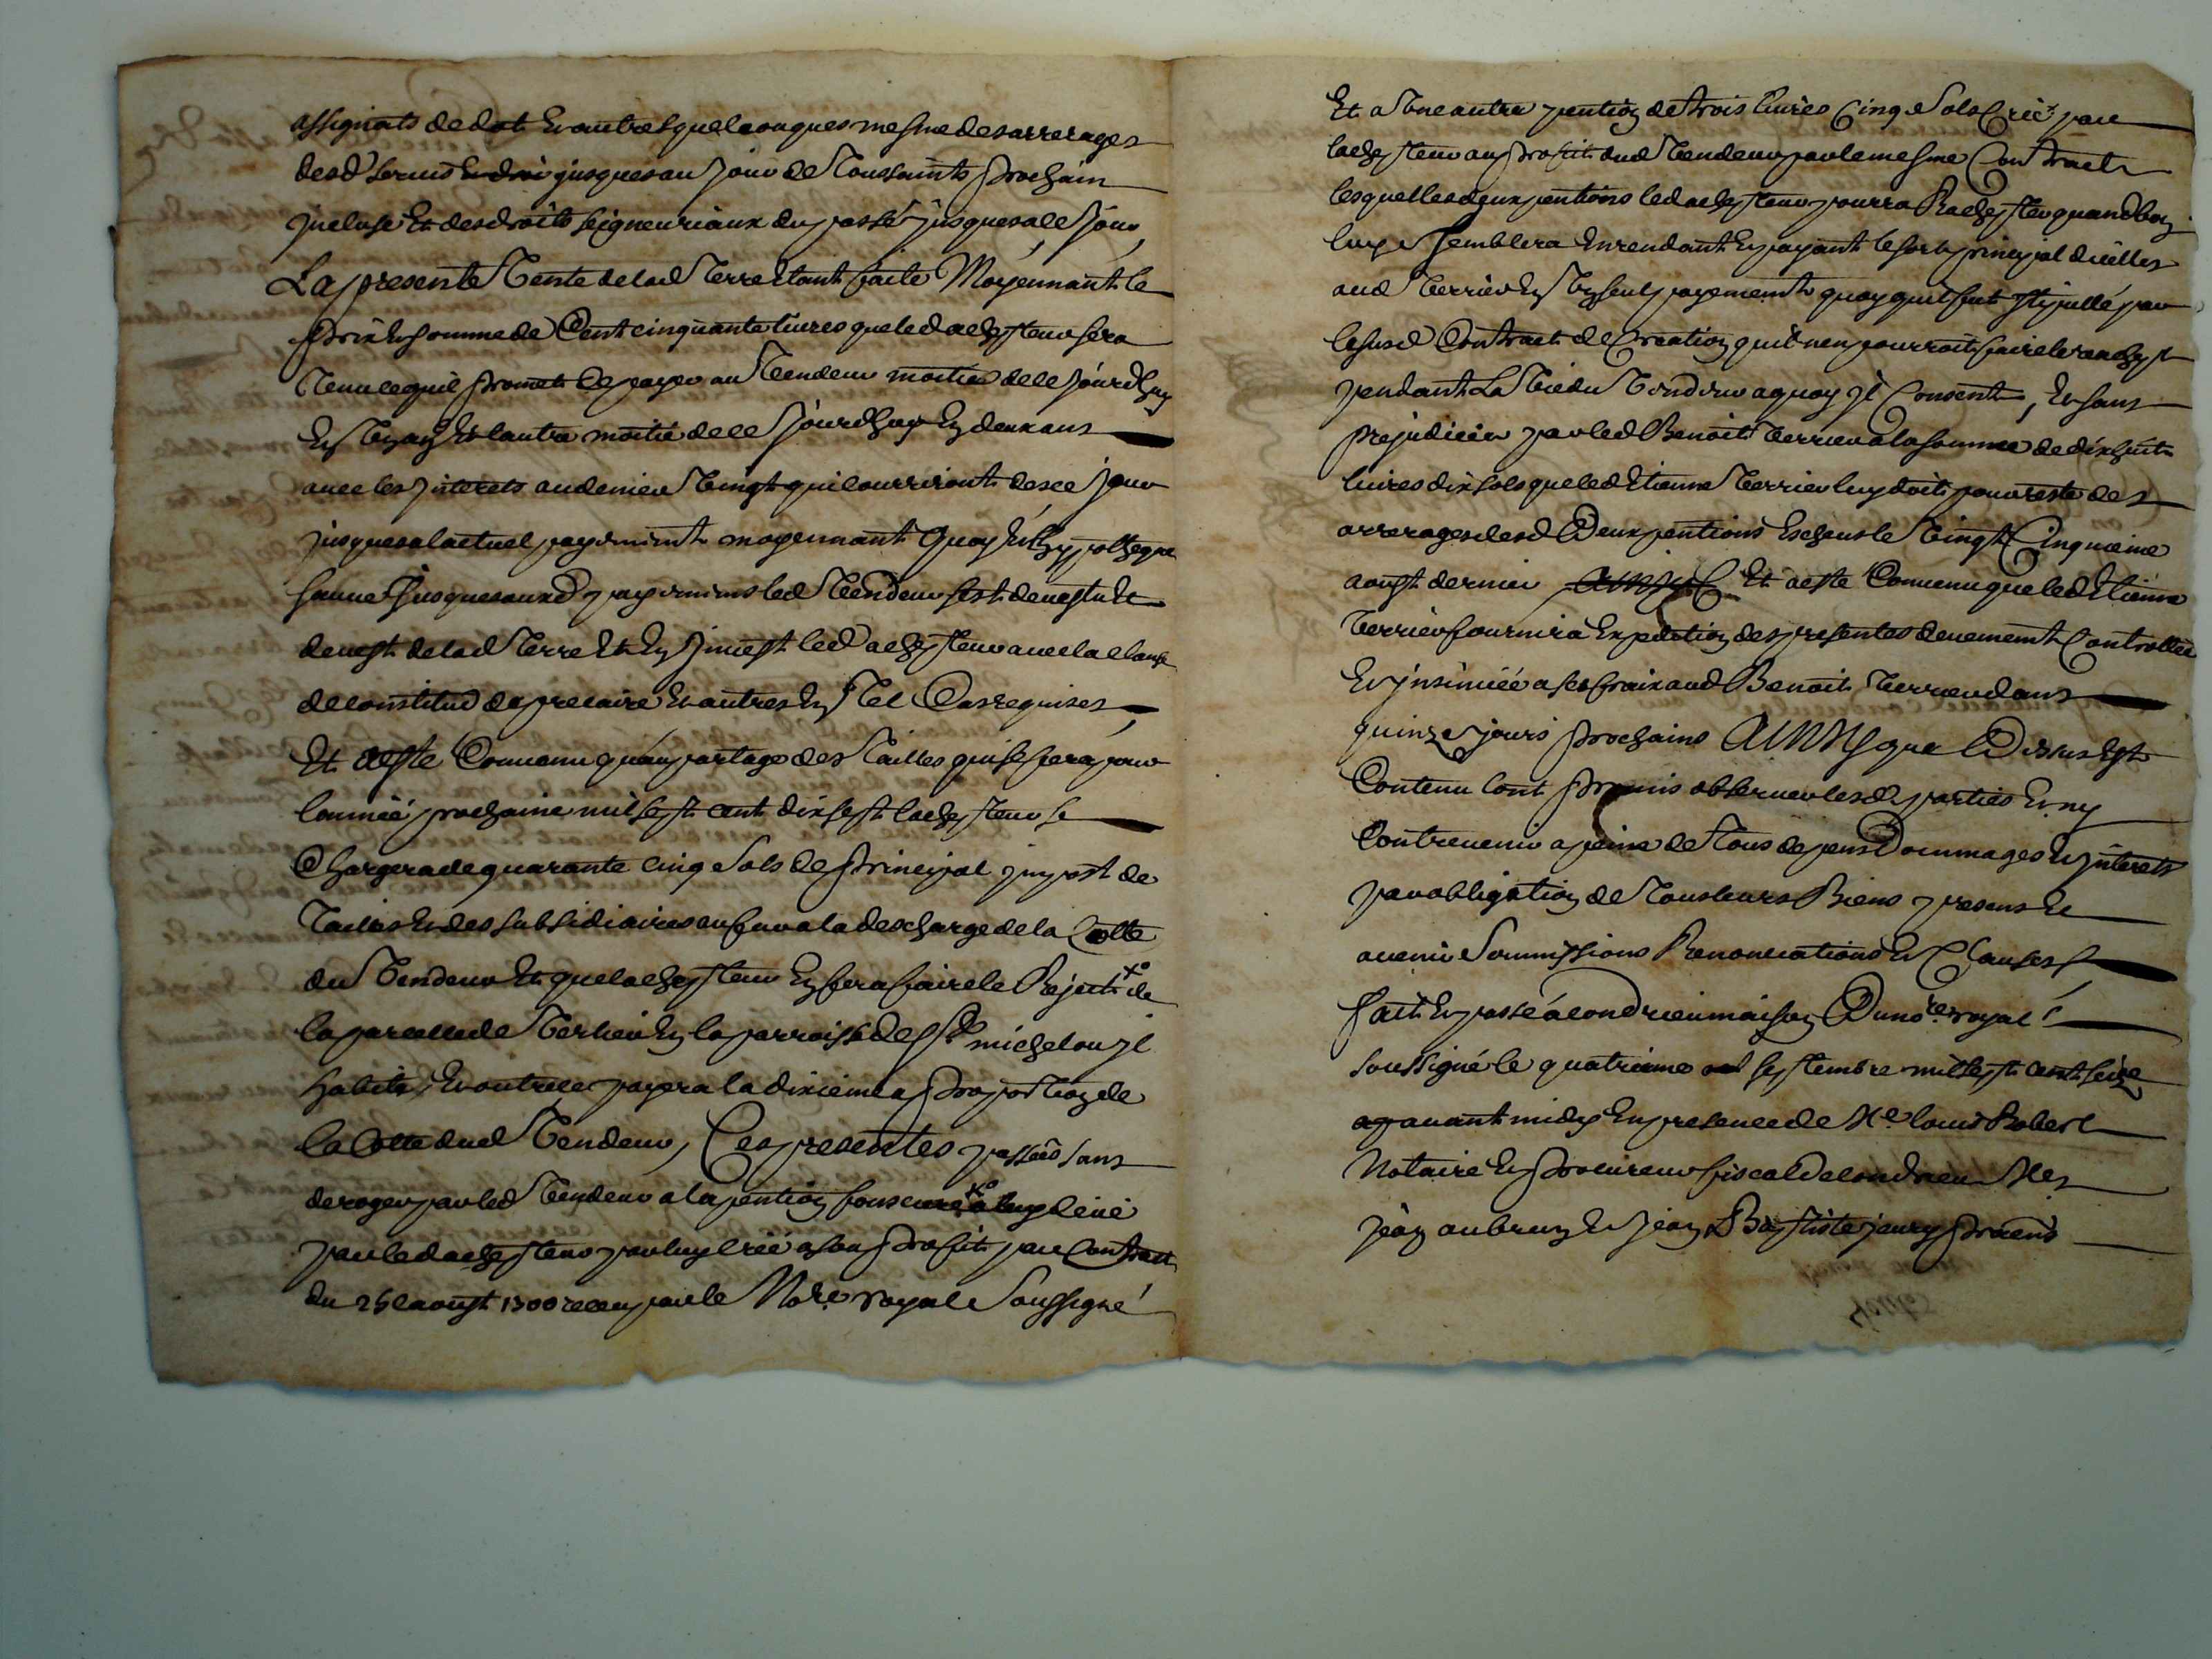 assignats de dot et autres quelconques mesme des arrerages
desd servis jusques au jour de Toussaints prochain
jncluse Et des droits seigneuriaux du passé jusques a ce jour,
La presente vente de lad Terre Etant faite Moyennant le
prix et somme de Cent cinquante livres que led achepteur sera
Tenu et promet de payer au vendeur moitié de ce jourdhuy
En un an Et lautre moitié de ce jourdhuy En deux ans
avec les jnterets au denier vingt qui courriront de ce jour
jusques a lactuel payement moyennant quoy Et hypotheque
sauve jusques aud payement led vendeur sest devestu Et
devest de lad Terre Et En jnvest led achepteur avec la clause
de constitud de precaire Et autres En Tel Cas requises
Et a esté Convenu quau partage des Tailles qui se fera pour
lannée prochaine mil sept cent dix sept lachepteur se
Chargera de quarante cinq sols de principal jmpost de
Tailles Et des subsidiaires au fur a la descharge de la Cotte
du vendeur Et que lachepteur En fera faire le Rejet de
la parcelle de verlieu En la parroisse de St michel ou jl
habite, Et outre ce payera la dixieme a proportion de
la Cotte dud vendeur, Ces presentes passées sans
deroger par led vendeur a la pention fonciere a luy deue
par led achepteur par luy créé a son profit par Contract
du 25e aoust 1700 receu par le Nore royal Soussigné
Et a une autre pention de trois livres Cinq Sols Créé par
lachepteur au profit dud vendeur par le mesme Contract
lesquelles deux pentions led achepteur pourra Rachepter quand bon
luy semblera En rendant Et payant le sort principal dicelles
aud verrier En un seul payement quoy quil fut stipullé par
le susd Contract de Creation quil nen pourroit faire le rachept
pendant La vie du vendeur a quoy jl Consent, Et sans
prejudicier par led Benoit verrier a la somme de dix huit
livres dix sols que led Etienne verrier luy doit pour reste des
arrerages desd Deux pentions Escheus le vingt Cinquieme
aoust dernier Et a esté Convenu que led Etienne
verrier fournira Expedition des presentes deuement Controllée
Et jnsinuée a ses fraix aud Benoit verrier dans
quinze jours prochains AINSY que Dessus Est
Contenu lont promis observer lesd parties Et ny
Contrevenir a peine de Tous depens Dommages Et jnterets
par obligation de Tous leurs Biens presens Et
avenir Soumissions Renonciations Et Clauses
fait Et passé a condrieu maison Du nore royal
soussigné le quatrieme septembre mil sept cent seize
avant midy En presence de Me louis Robert
Notaire Et procureur fiscal de condrieu Mes
jean aubrun Et jean Baptiste jamy